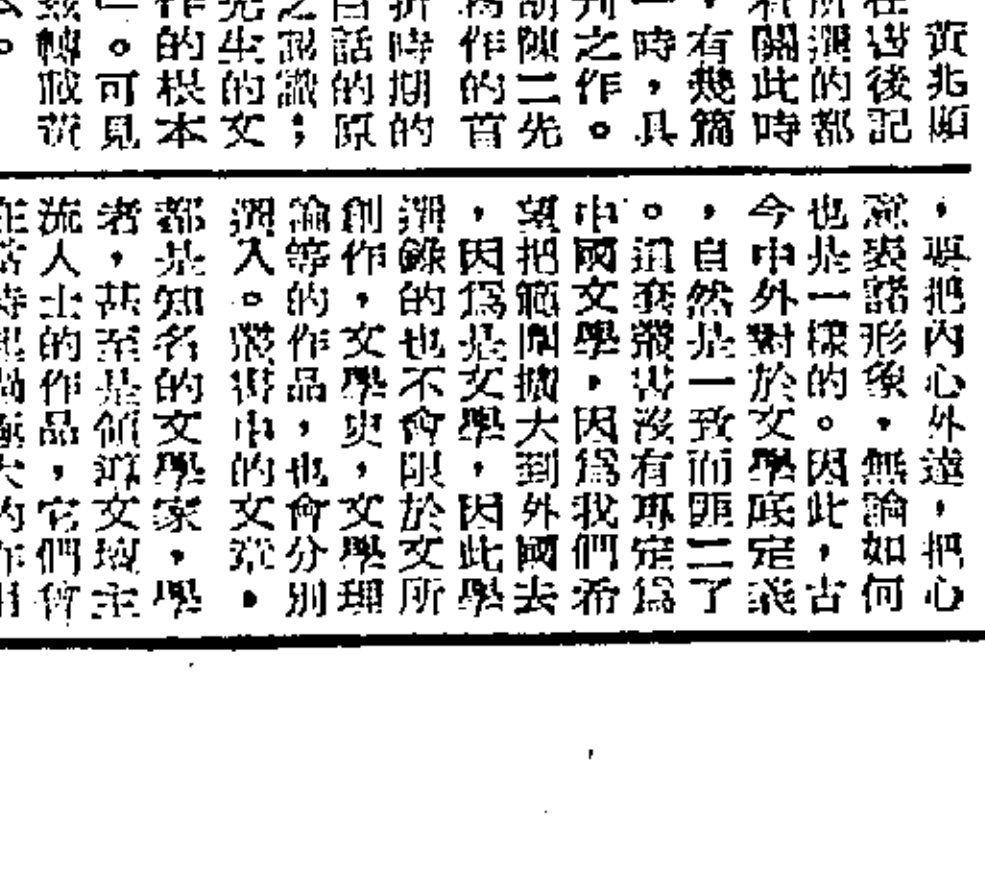 黃兆顯
在書後記
所選的都
有關此時
，有幾篇
一時，具
刊之作。
胡陳二先
寫作的首
時期的
白話的原
之認識；
先生的文
作的根本
一。可見
茲轉載黃
。
，要把內心外遠，把心
意表諸形象，無論如何
也是一樣的。因此，古
今中外對於文學底定義
，自然是一致而距二了
。這套叢書沒有專定為
中國文學，因為我們希
望把範圍擴大到外國去
，因為是文學，因此學
選錄的也不會限於文所
創作，文學史，文學理
論等的作品，也會分別
選入。叢書中的文章，
都是知名的文學家，學
者，甚至是領導文壇主
流人士的作品，它們會